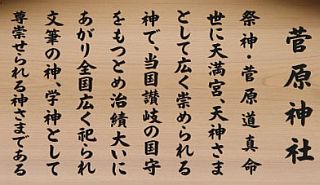 菅原神社
祭神・菅原道真命
世に天満宮、天神さま
として広く崇められる
神で、当国讃岐の国守
をもつとめ治績大いに
あがり全国広く祀られ
文筆の神、学神として
尊崇せられる神さまである